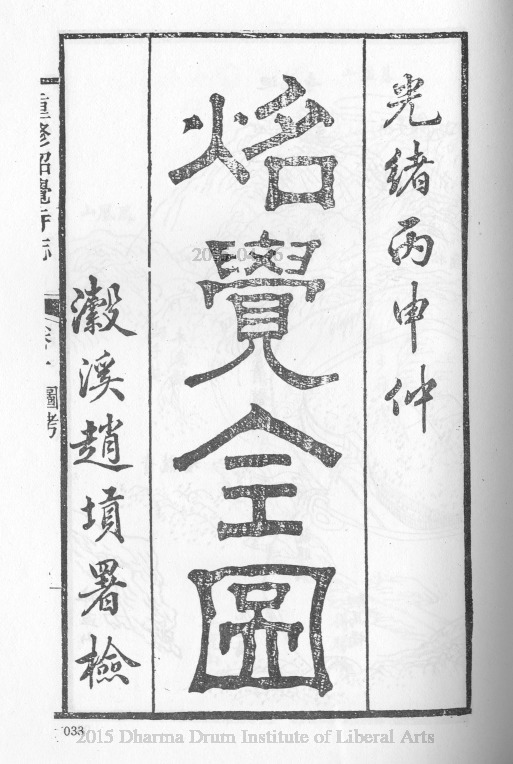 光緒丙申仲
炤覺全圖
瀫溪趙塤署檢
重修昭覺寺志 卷一 圖考
033
2015 Dharma Drum Institute of Liberal Arts